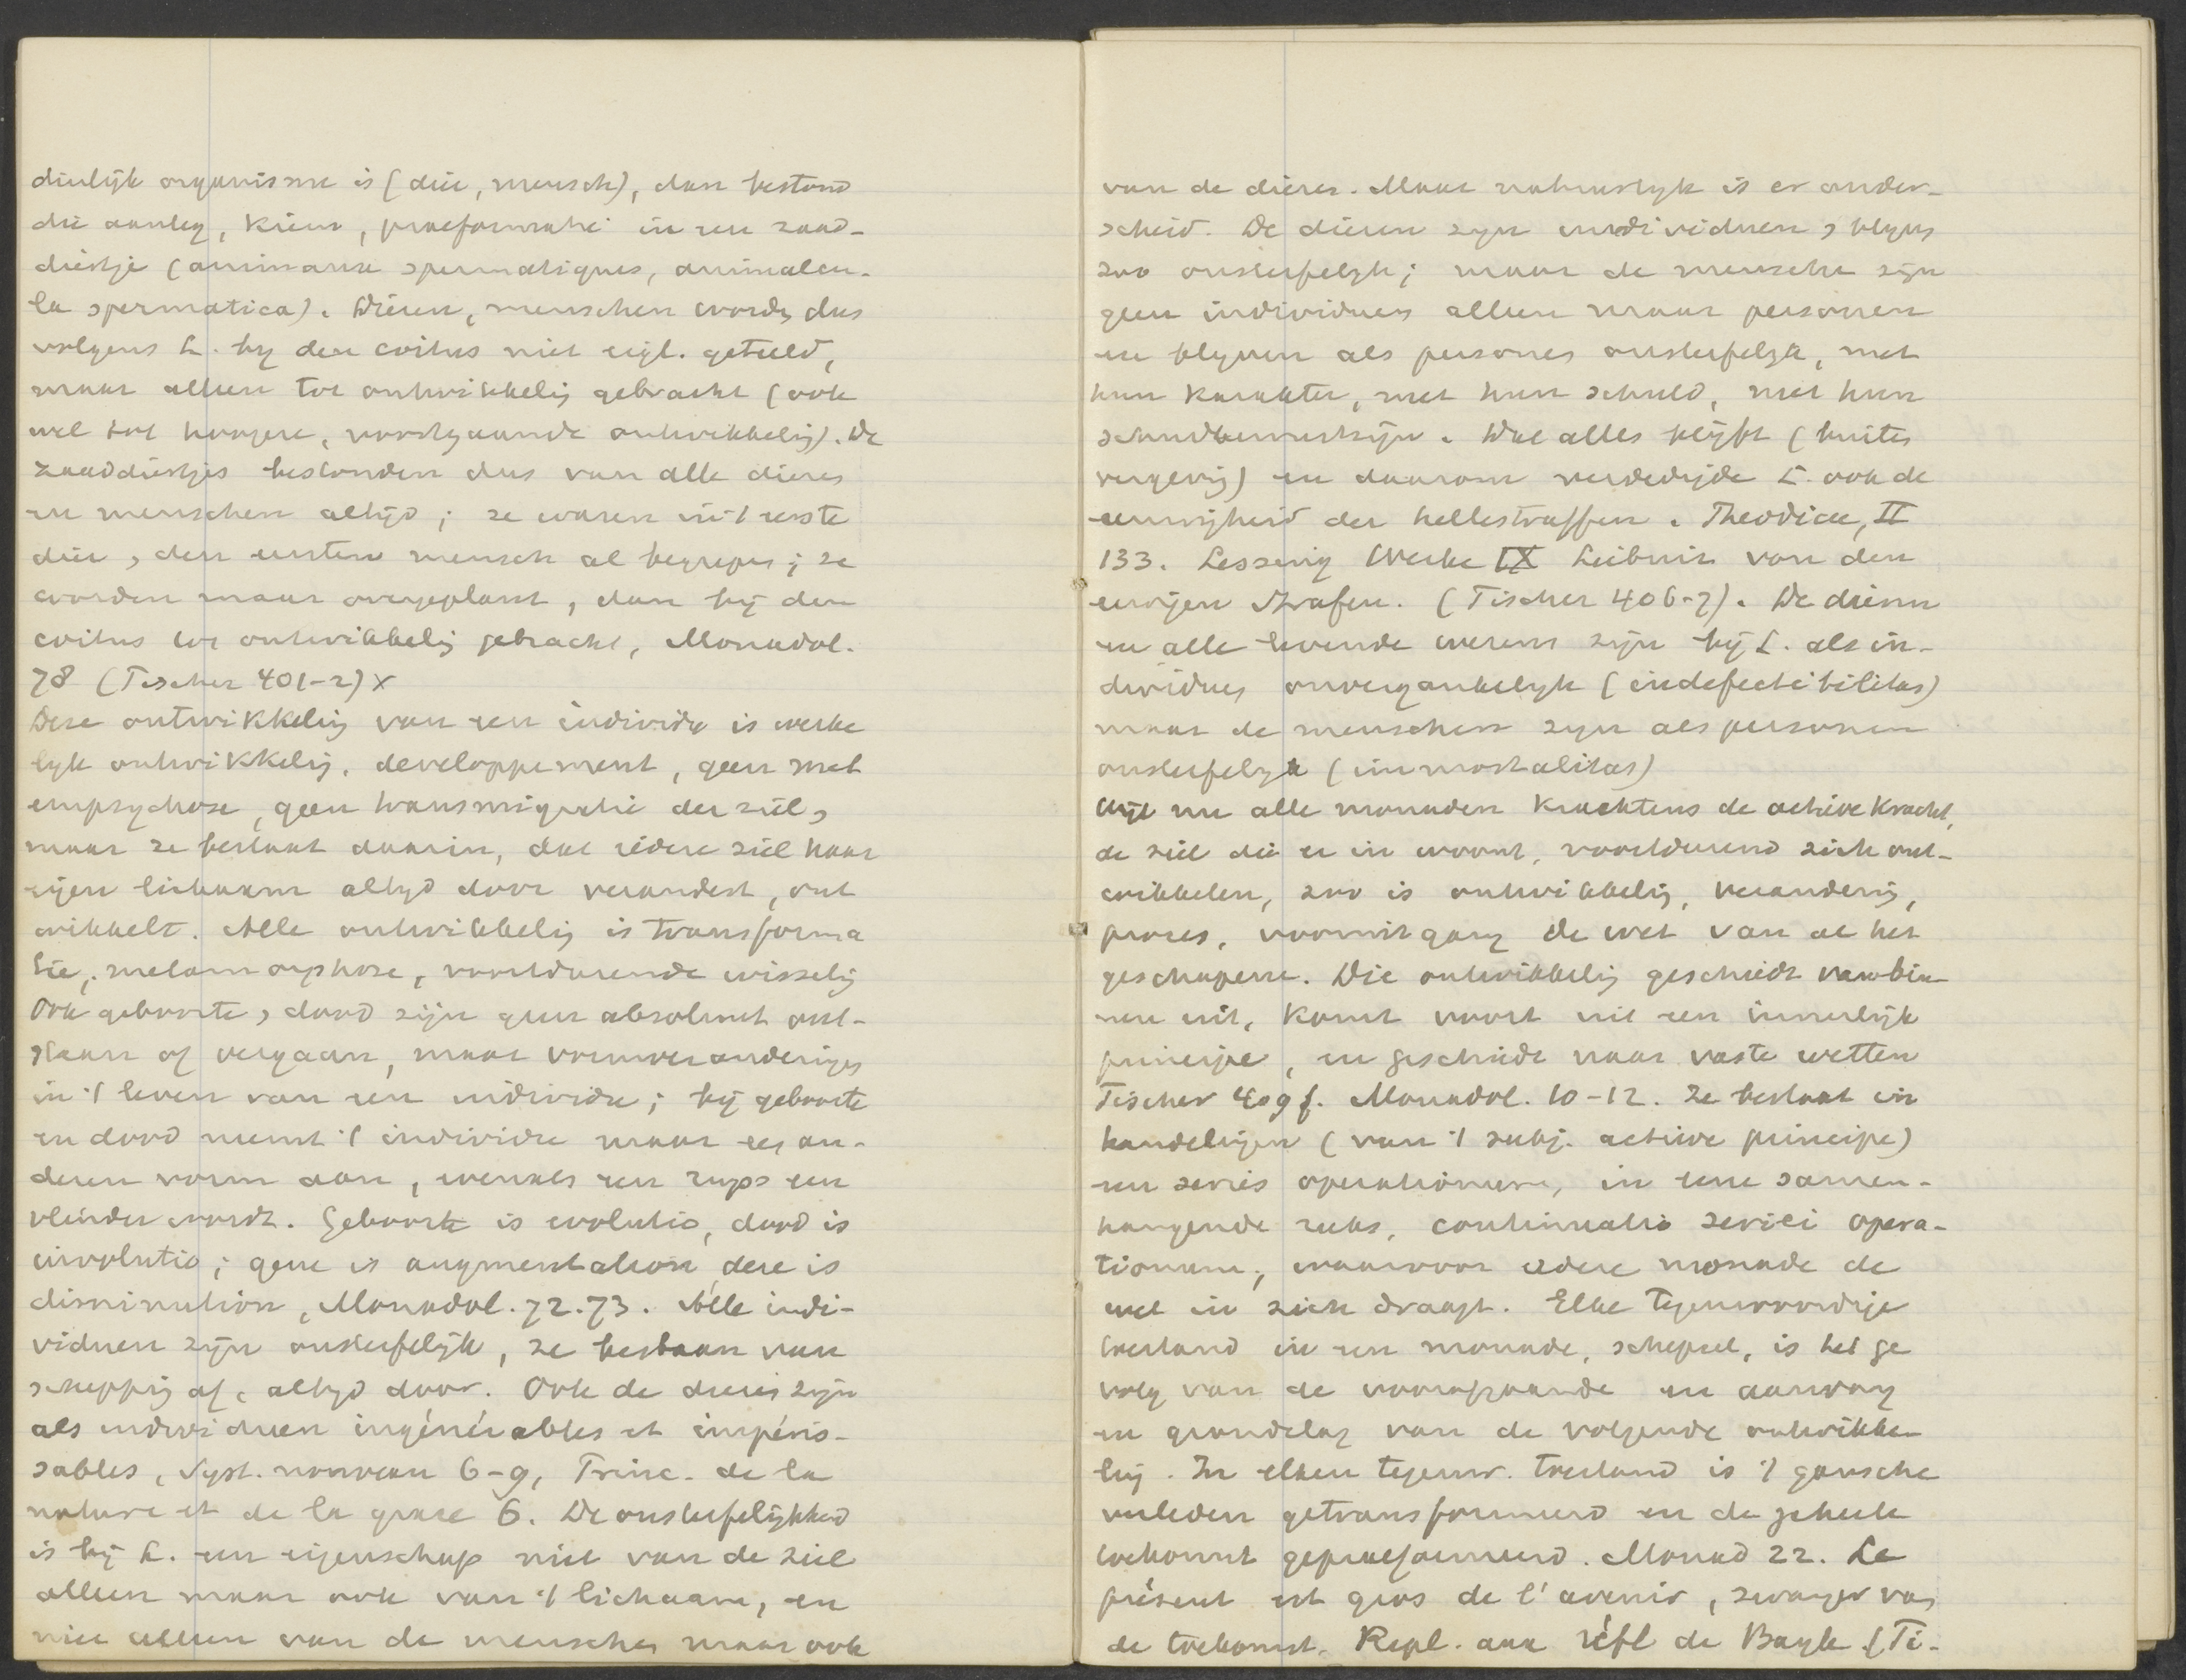 dierlijk organisme is (dier, mensch), dan bestond
die aanleg, kiem, praeformatie in een zaad-
diertje (animaux spermatiques, animalcu-
la spermatica). Dieren, menschen worden dus
volgens L. by den coitus niet eigl. geteeld,
maar alleen tot ontwikkeling gebracht (ook
wel tot hoogere, voortgaande ontwikkeling). De
zaaddiertjes bestonden dus van alle dieren
en menschen altijd; ze waren in 't eerste
dier, den eersten mensch al begrepen; ze
worden maar overgeplant, dan bij den
coitus tot ontwikkeling gebracht, Monadol.
78 (Tischer 401-2) x
Deze ontwikkeling van een individu is werke
lyk ontwikkeling, developpement, geen met
empsychose, geen transmigratie der ziel,
maar ze bestaat daarin, dat iedere ziel haar
eigen lichaam altyd door verandert, ont
wikkelt. Alle ontwikkeling is transforma
tie, metamorphose, voortdurende wisseling
Ook geboorte, dood zijn geen absoluut ont-
staan of vergaan, maar vormveranderingen
in 't leven van een individu; bij geboorte
en dood neemt 't individu maar een an-
deren vorm aan, evenals een rups een
vlinder wordt. Geboorte is evolutio, dood is
involutio; gene is augmentation, deze is
diminution, Monadol. 72. 73. Alle indi-
viduen zijn onsterfelijk, ze bestaan van
schepping af, altyd door. Ook de dieren zijn
als individuen ingénérables et impéris-
sables, Syst. nouveau 6-9, Princ. de la
nature et de la grace 6. De onsterfelijkheid
is bij L. een eigenschap niet van de ziel
alleen maar ook van 't lichaam, en
niet alleen van de menschen maar ook
van de dieren. Maar natuurlyk is er onder-
scheid. De dieren zyn individuen, blyven
zoo onsterfelyk; maar de menschen zijn
geen individuen alleen maar personen
en blyven als personen onsterfelyk, met
hun karakter, met hun schuld, met hun
schuldbewustzijn. Dat alles blijft (buiten
vergeving) en daarom verdedigde L. ook de
eeuwigheid der hellestraffen. Theodicee, II
133. Lessing Werke IX Leibniz von den
ewigen Strafen. (Tischer 406-7). De dieren
en alle levende wezens zijn bij L. als in-
dividuen onvergankelyk (indefectibilitas)
maar de menschen zyn als personen
onsterfelyk (immortalitas)
Wijl nu alle monaden krachtens de actieve kracht,
de ziel die er in woont, voortdurend zich ont-
wikkelen, zoo is ontwikkeling, verandering,
proces, vooruitgang de wet van al het
geschapene. Die ontwikkeling geschiedt van bin
nen uit, komt voort uit een innerlijk
principe, en geschiedt naar vaste wetten
Tischer 409 f. Monadol. 10-12. Ze bestaat in
handelingen (van 't subj. actieve principe)
een series operationum, in eene samen-
hangende reeks, continuatio seriei opera-
tionum, waarvoor iedere monade de
wet in zich draagt. Elke tegenwoordige
toestand in een monade, schepsel, is het ge
volg van de voorafgaande en aanvang
en grondslag van de volgende ontwikke
ling. In elken tegenw. toestand is 't gansche
verleden getransformeerd en de geheele
toekomst gepraeformeerd. Monad 22. Le
présent est gros de l'avenir, zwanger van
de toekomst. Repl. aux réfl de Bayle (Ti-